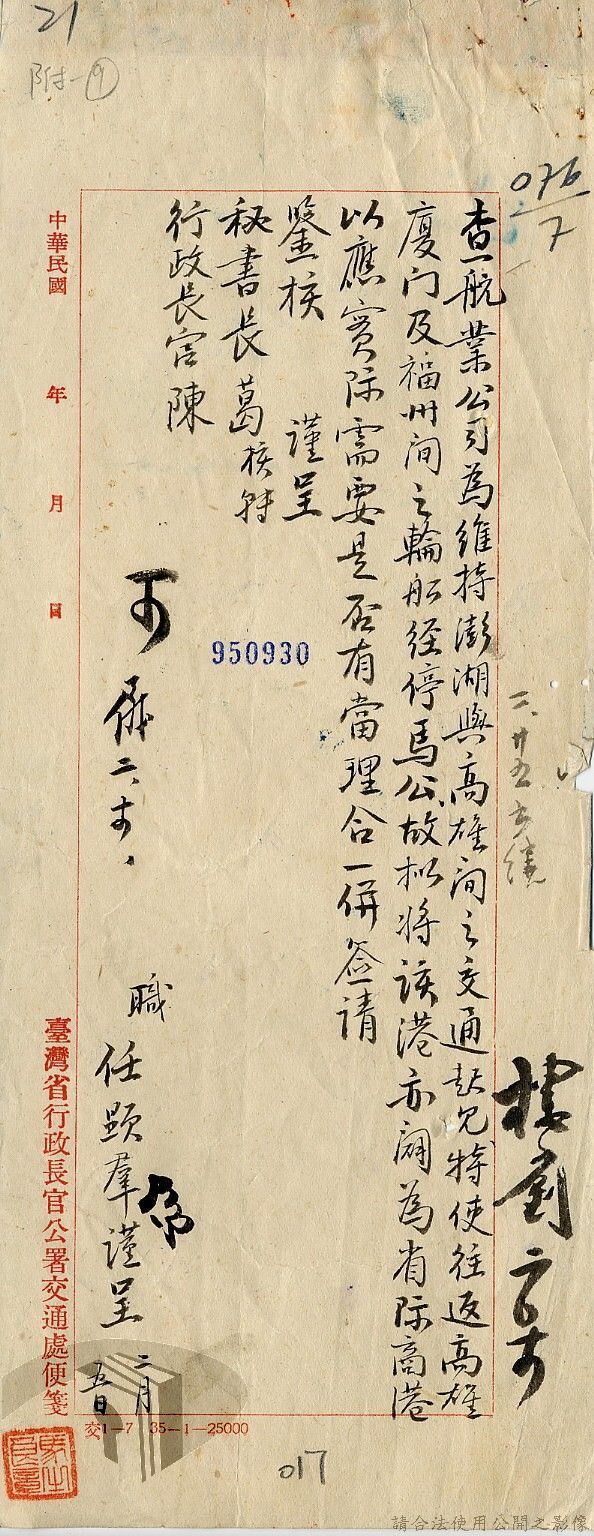 21
附-⑨
076/7
查航業公司為維持澎湖與高雄间之交通起見特使往返高雄
厦门及福州间之輪船经停馬公故拟将該港亦闢為省际商港
以應實际需要是否有當理合一併簽请
鑒核 謹呈
秘書長葛核轉
行政長官陳
可
950930
職 任顕羣謹呈 二月五日
中華民國 年 月 日
臺灣省行政長官公署交通處便箋
交1—7 35—1—25000
017
請合法使用公開之影像